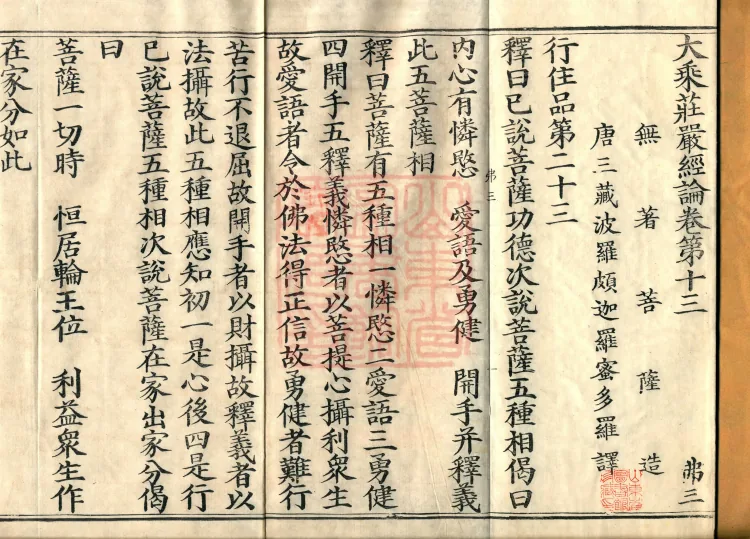 大乘莊嚴經論卷第十三 弗三
無著菩薩造
唐三藏波羅頗迦羅蜜多羅譯
行住品第二十三
釋曰已說菩薩功德次說菩薩五種相偈曰
弗三
內心有憐愍 愛語及勇健 開手并釋義
此五菩薩相
釋曰菩薩有五種相一憐愍二愛語三勇健
四開手五釋義憐愍者以菩提心攝利衆生
故愛語者令於佛法得正信故勇健者難行
苦行不退屈故開手者以財攝故釋義者以
法攝故此五種相應知初一是心後四是行
已說菩薩五種相次說菩薩在家出家分偈
曰
菩薩一切時 恒居輪王位 利益衆生作
在家分如此